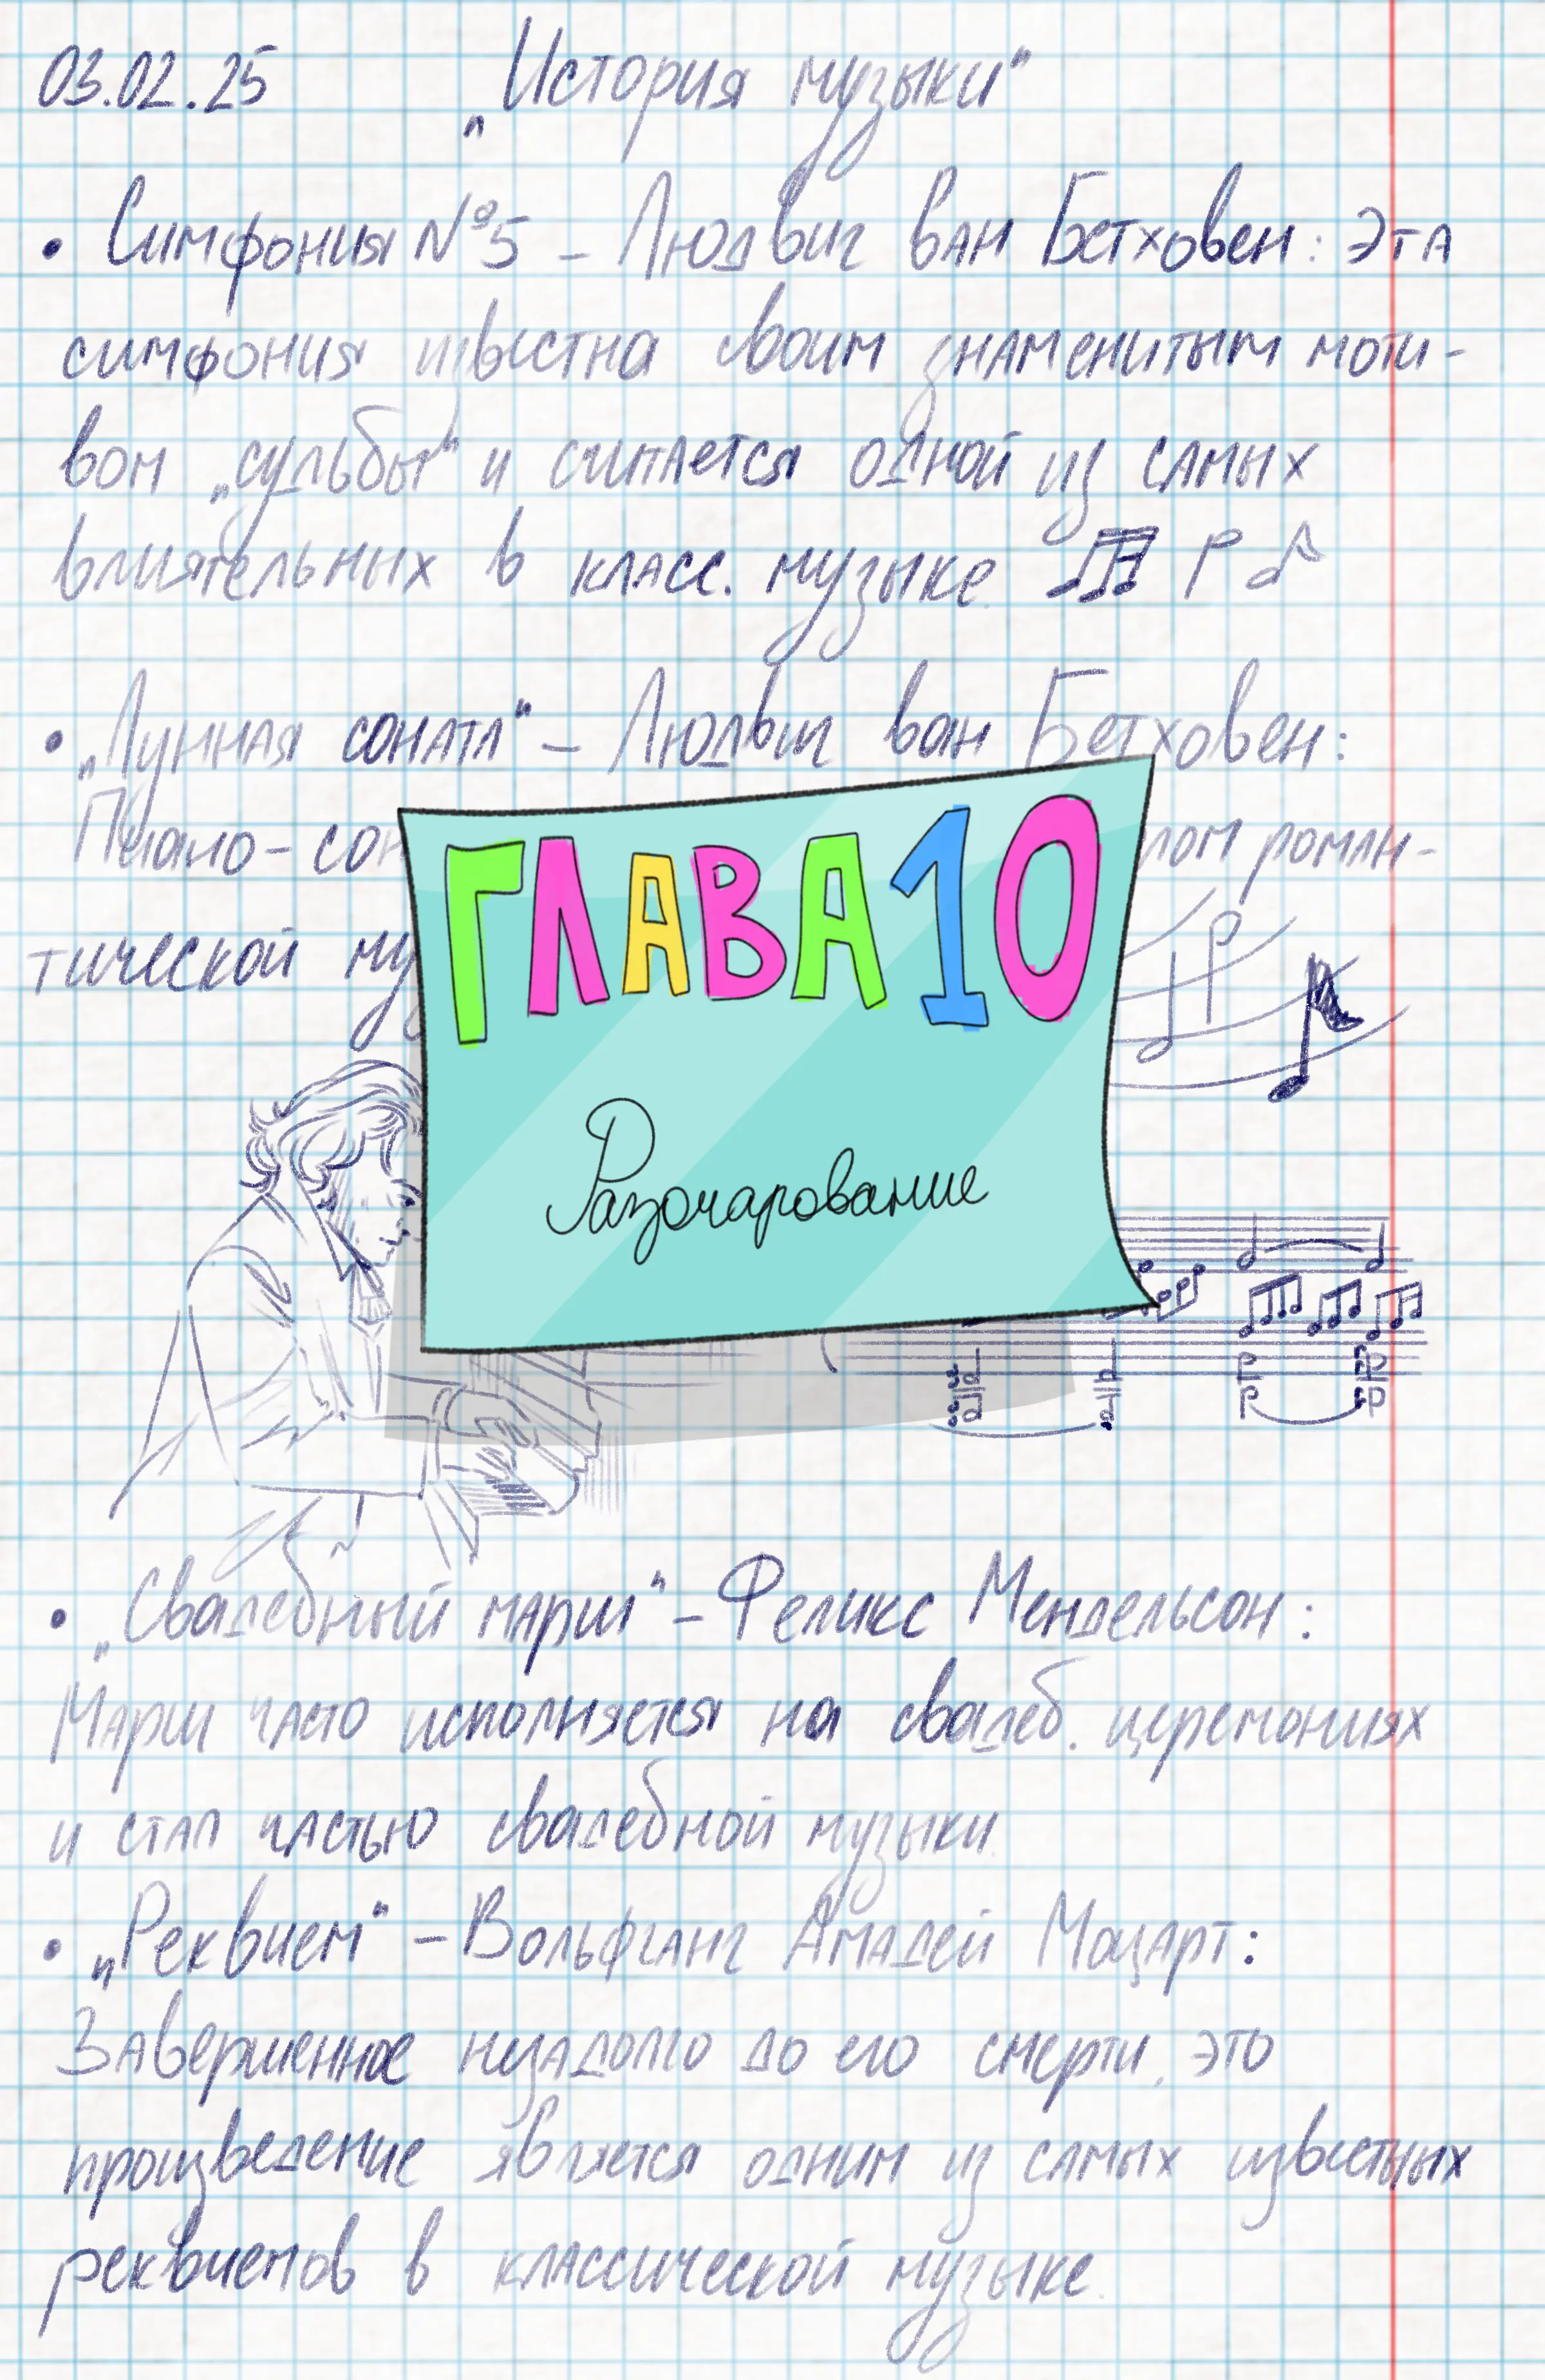 03.02.25 „История музыки"
• Симфония №5 – Людвиг ван Бетховен: Эта
симфония известна своим знаменитым моти-
вом „судьбы" и считается одной из самых
влиятельных в класс. музыке.
• „Лунная соната" – Людвиг ван Бетховен:
Пиано-сон
лом роман-
тической му
ГЛАВА 10
Разочарование
• „Свадебный марш" – Феликс Мендельсон:
Марш часто исполняется на свадеб. церемониях
и стал частью свадебной музыки.
• „Реквием" – Вольфганг Амадей Моцарт:
Завершенное незадолго до его смерти, это
произведение является одним из самых известных
реквиемов в классической музыке.